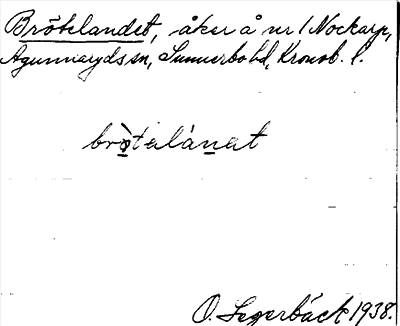 Brötelandet, åker å nr 1 Nockarp,
Agunnaryds sn, Sunnerbo hd, Kronob. l.
bròtelánat
O. Segerbäck 1938.